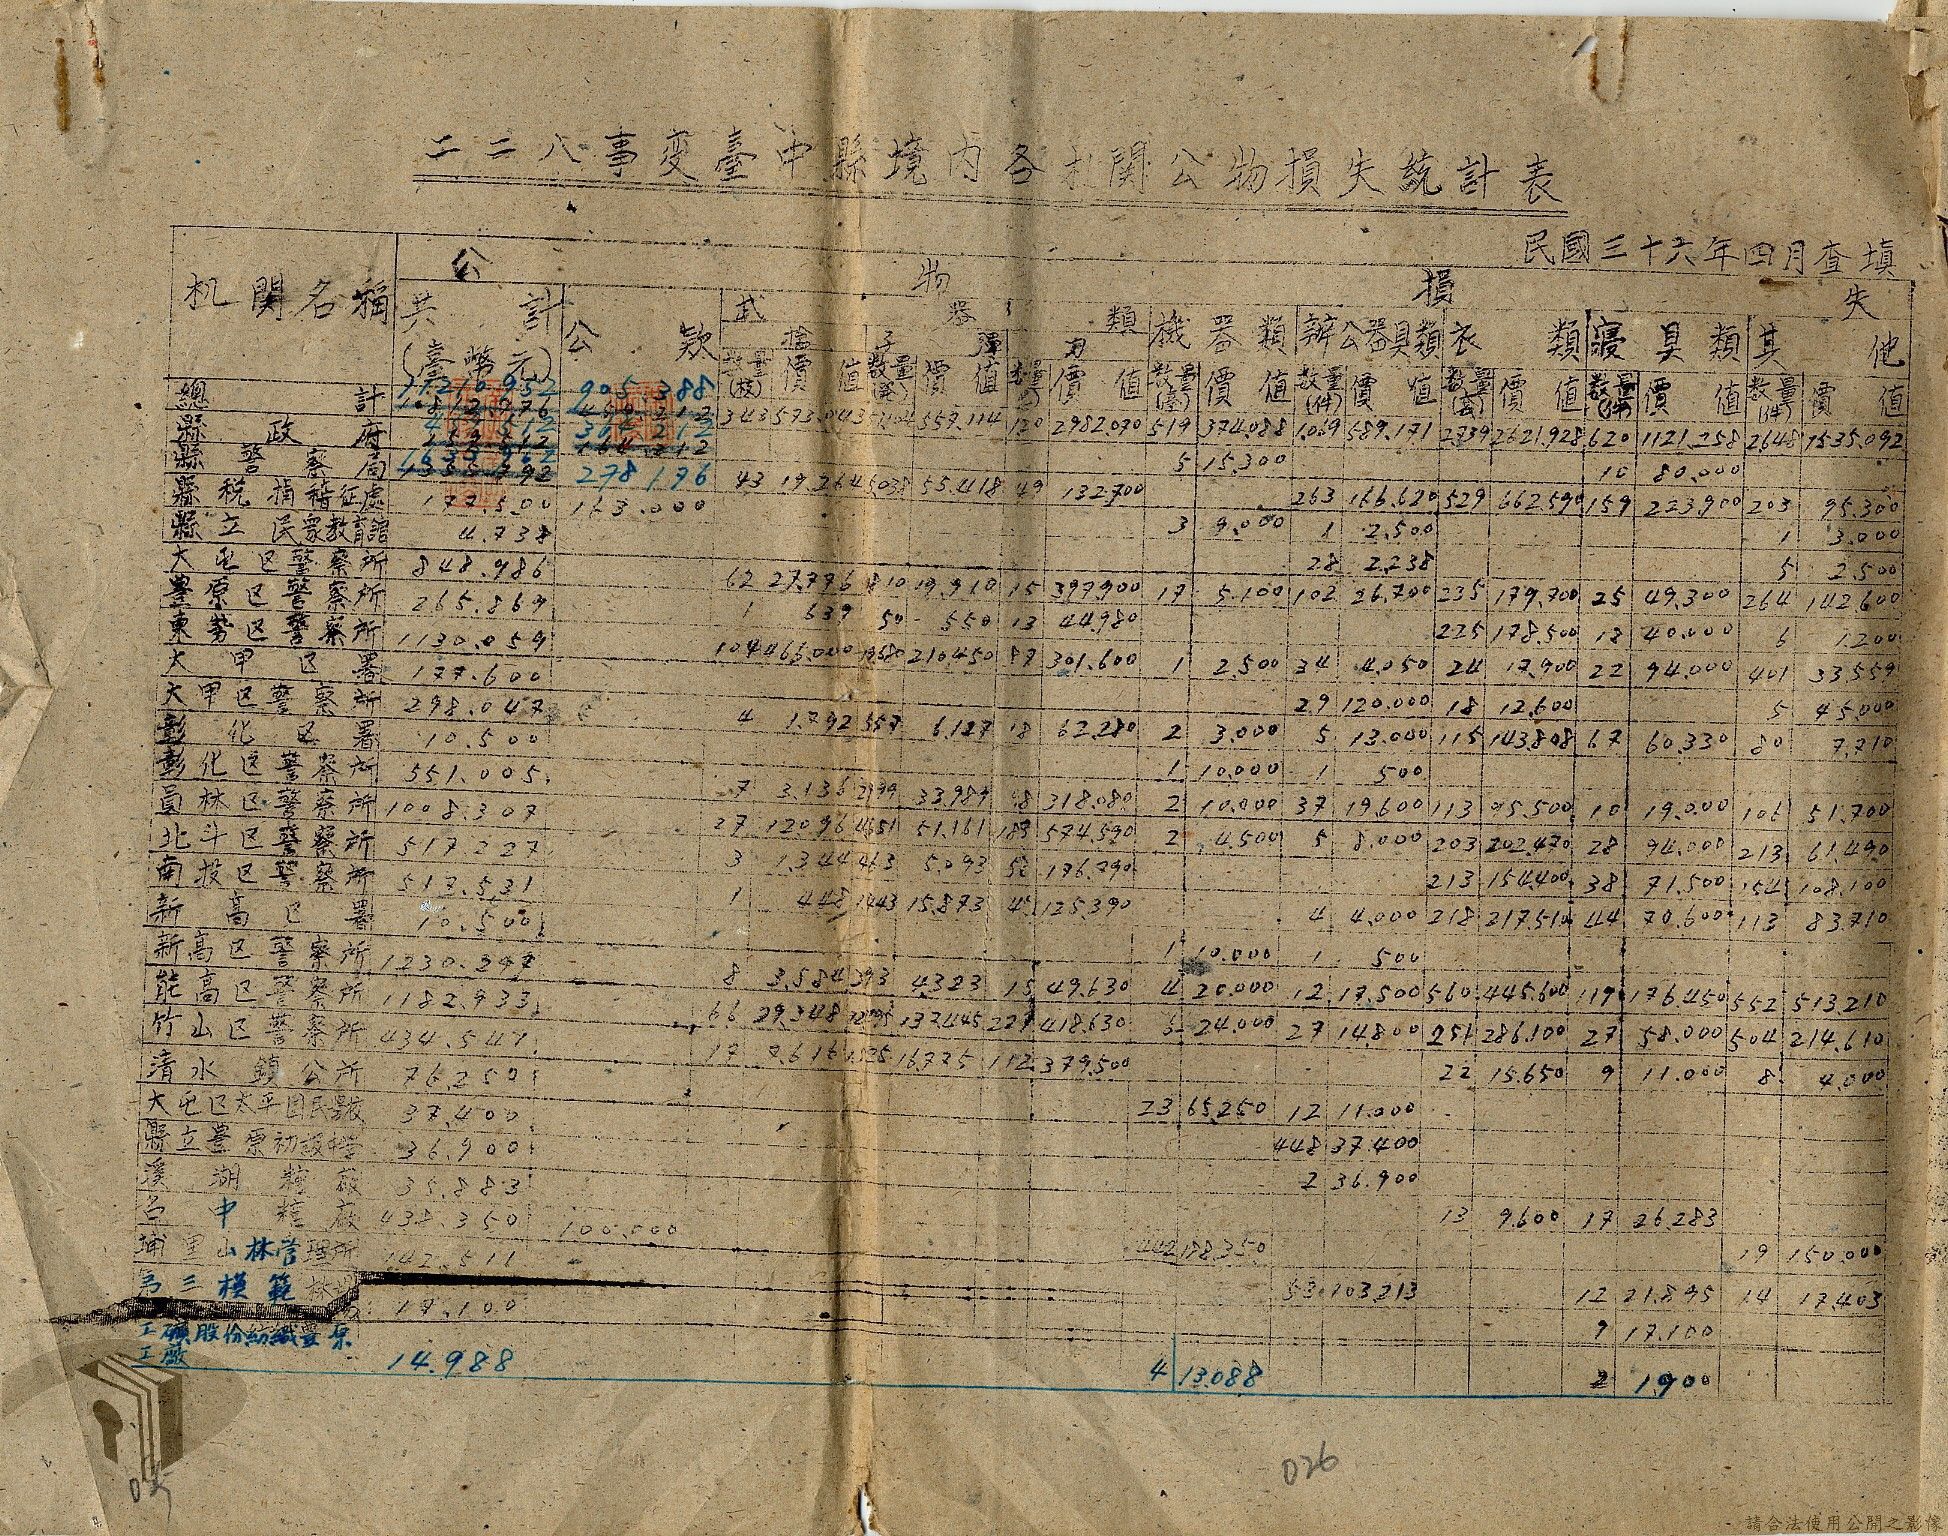 二二八事变臺中縣境内各机関公物損失統計表
民國三十六年四月查填
机関名稱 公 物 損 失
共計(臺幣元) 公款 武器類 機器類 辦公器具類 衣類 寢具類 其他
槍 子彈 刀
数量(枝) 價值 数量(發) 價值 数量 價值 数量(台) 價值 数量(件) 價值 数量(套) 價值 数量(件) 價值 数量(件) 價值
總計 905.388 343 557.114 120 2982.070 519 374.088 1.069 589.171 2739 2621.928 620 1121.258 2648 1535.092
縣政府 5 15.300 10 80.000
縣警察局 278.196 43 19.264 5.038 55.418 49 132.700 263 166.620 529 662.590 159 223.900 203 95.300
縣稅捐稽征處 177.500 163.000 3 9.000 1 2.500 1 3.000
縣立民衆教育館 4.738 28 2.238 5 2.500
大屯区警察所 848.986 62 27.776 810 19.910 15 397.900 17 5.100 102 26.700 235 179.700 25 49.300 264 142.600
豊原区警察所 265.869 1 639 50 550 13 44.980 225 178.500 18 40.000 6 1.200
東勢区警察所 1130.059 104 466.000 210.450 87 301.600 1 2.500 34 4.050 24 17.900 22 94.000 401 33.559
大甲区署 177.600 29 120.000 18 12.600 5 45.000
大甲区警察所 298.047 4 1.792 557 6.127 18 62.280 2 3.000 5 13.000 115 143.808 67 60.330 80 7.710
彰化区署 10.500 1 10.000 1 500
彰化区警察所 551.005 7 3.136 33.989 318.080 2 10.000 37 19.600 113 95.500 10 19.000 106 51.700
員林区警察所 1008.307 27 12.096 4651 51.161 183 574.590 2 4.500 5 8.000 203 202.470 28 94.000 213 61.490
北斗区警察所 517.227 3 1.344 463 5.093 176.790 213 154.400 38 71.500 154 108.100
南投区警察所 517.531 1 448 1443 15.873 125.390 4 4.000 218 217.510 44 70.600 113 83.710
新高区署 10.500 1 10.000 1 500
新高区警察所 1230.297 8 3.584 393 4.323 15 49.630 4 20.000 12 17.500 560 445.600 119 176.450 552 513.210
能高区警察所 1182.933 66 29.348 137.445 418.630 6 24.000 27 14.800 251 286.100 27 58.000 504 214.610
竹山区警察所 434.541 17 7.616 1525 16.775 112 379.500 22 15.650 9 11.000 8 4.000
清水鎮公所 76.250 23 65.250 12 11.000
大屯区太平国民學校 37.400 448 37.400
縣立豊原初級中学 36.900 2 36.900
溪湖糖廠 35.883 13 9.600 17 26.283
台中糖廠 438.350 100.000 442 188.350 19 150.000
埔里山林管理所 142.511 53 103.213 12 21.895 14 17.403
第三模範林場 17.100 9 17.100
工礦股份紡織豊原
工廠 14.988 4 13.088 2 1.900
026
請合法使用公開之影像